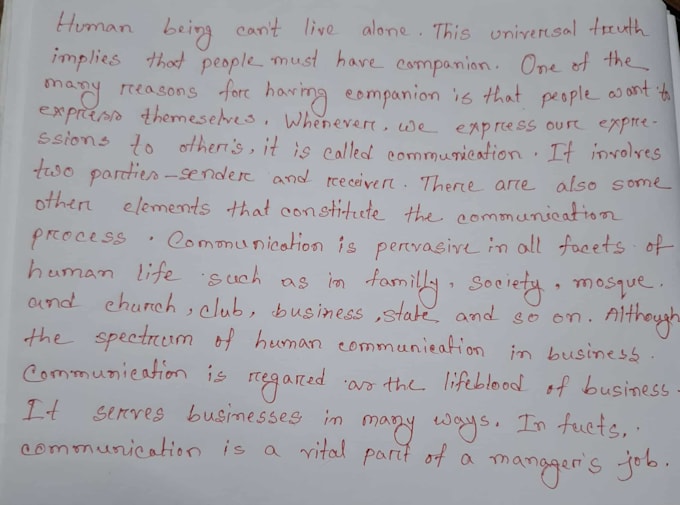 Human being can't live alone. This universal truth
implies that people must have companion. One of the
many reasons for having companion is that people want to
express themeselves. Whenever, we express our expre-
ssions to other's, it is called communication. It involves
two parties-sender and receiver. There are also some
other elements that constitute the communication
process. Communication is pervasive in all facets of
human life such as in familly, society, mosque.
and church, club, business, state and so on. Although
the spectrum of human communication in business.
Communication is regared as the lifeblood of business.
It serves businesses in many ways. In facts,.
communication is a vital part of a manager's job.